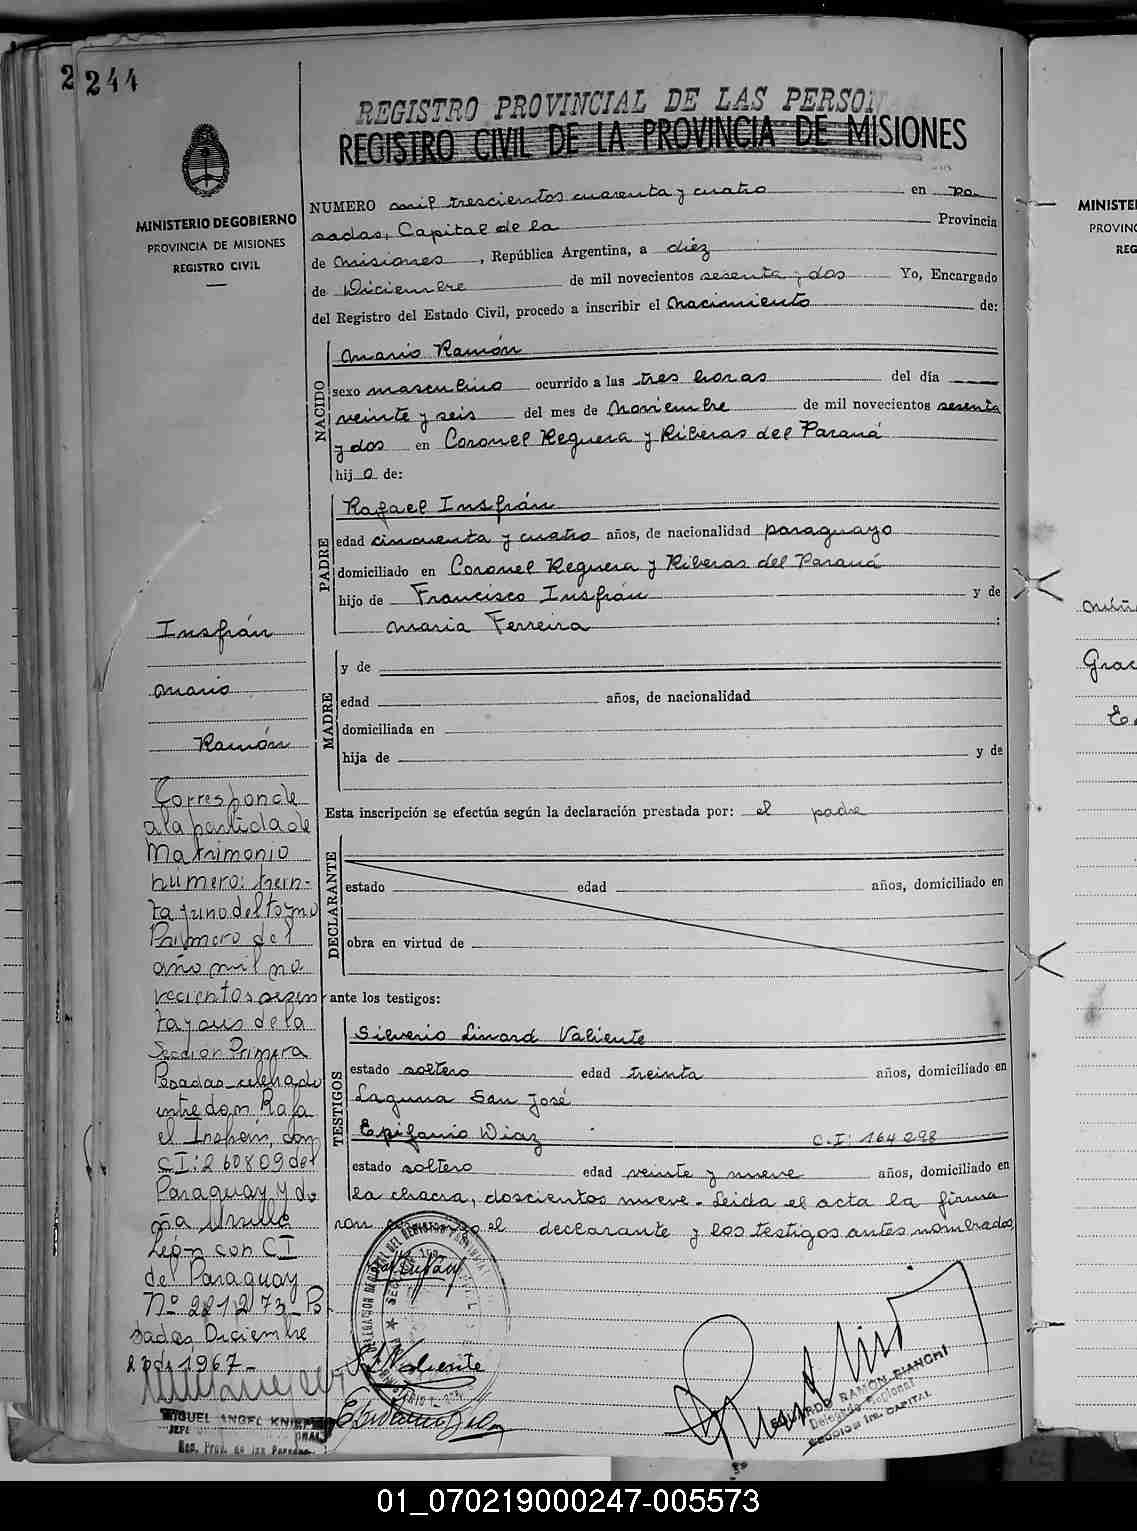 244
REGISTRO PROVINCIAL DE LAS PERSONAS
REGISTRO CIVIL DE LA PROVINCIA DE MISIONES
MINISTERIO DE GOBIERNO
PROVINCIA DE MISIONES
REGISTRO CIVIL
NUMERO mil trescientos cuarenta y cuatro en Po
sadas, Capital de la Provincia
de Misiones, República Argentina, a diéz
de Diciembre de mil novecientos sesenta y dos Yo, Encargado
del Registro del Estado Civil, procedo a inscribir el Nacimiento de:
NACIDO
Mario Ramón
sexo masculino ocurrido a las tres horas del día
veinte y seis del mes de Noviembre de mil novecientos sesenta
y dos en Coronel Reguera y Riberas del Paraná
hijo de:
PADRE
Rafael Insfrán
edad cincuenta y cuatro años, de nacionalidad paraguayo
domiciliado en Coronel Reguera y Riberas del Paraná
hijo de Francisco Insfrán y de
Maria Ferreira :
MADRE
y de
edad años, de nacionalidad
domiciliada en
hija de y de
Esta inscripción se efectúa según la declaración prestada por: el padre
DECLARANTE
estado edad años, domiciliado en
obra en virtud de
ante los testigos:
TESTIGOS
Silverio Linard Valiente
estado soltero edad treinta años, domiciliado en
Laguna San José
Epifanio Diaz C.I: 164298
estado soltero edad veinte y nueve años, domiciliado en
la chacra, doscientos nueve. Leida el acta la firma
ron el declarante y los testigos antes nombrados
Insfrán
Mario
Ramón
Corresponde
a la partida de
Matrimonio
número: trein-
ta y uno del tomo
Primero del
año mil no
vecientos sesen
ta y seis de la
Seccion Primera
Posadas celebrado
entre don Rafa
el Insfrán, con
CI: 260809 del
Paraguay y do
ña Ursula
León con CI
del Paraguay
Nº 221273_Po
sadas Diciembre
de 1967_
MIGUEL ANGEL
JEFE
Reg. Prov. de las Personas
DELEGACION REGIONAL DEL REGISTRO PROVINCIAL
Valiente
EDUARDO RAMON BIANCHI
Delegado Regional
SECCION 1ra. CAPITAL
MINISTE
PROVINC
REG
Grac
01_070219000247-005573